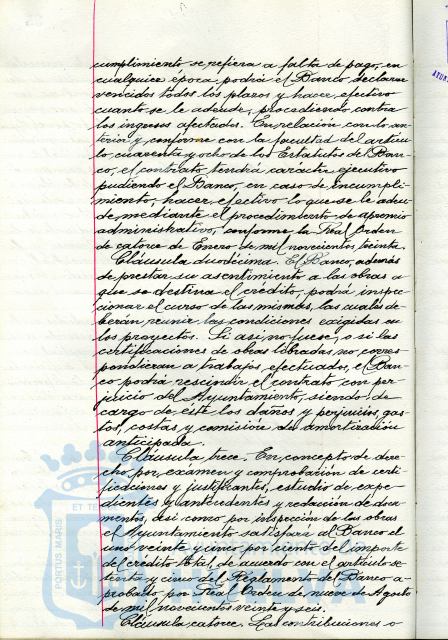 cumplimiento se refiera a falta de pago, en
cualquier época podrá el Banco declarar
vencidos todos los plazos y hacer efectivo
cuanto se le adeude, procediendo contra
los ingresos afectados. En relación con lo an-
terior y conforme con la facultad del artícu-
lo cuarenta y ocho de los Estatutos del Ban-
co, el contrato tendrá carácter ejecutivo
pudiendo el Banco, en caso de incumpli-
miento, hacer efectivo lo que se le adeu-
de mediante el procedimiento de apremio
administrativo, conforme la Real Orden
de catorce de Enero de mil novecientos treinta.
Cláusula duodécima. El Banco, además
de prestar su asentimiento a las obras a
que se destina el crédito, podrá inspec-
cionar el curso de las mismas, las cuales de-
berán reunir las condiciones exigidas en
los proyectos. Si así no fuese, o si las
certificaciones de obras libradas no corres-
pondieran a trabajos efectuados, el Ban-
co podrá rescindir el contrato con per-
juicio del Ayuntamiento, siendo de
cargo de éste los daños y perjuicios, gas-
tos, costas y comisión de amortización
anticipada.
Cláusula trece. En concepto de dere-
cho por exámen y comprobación de certi-
ficaciones y justificantes, estudio de expe-
dientes y antecedentes y redacción de docu-
mentos, así como por inspección de las obras
el Ayuntamiento satisfará al Banco el
uno veinte y cinco por ciento del importe
del crédito total, de acuerdo con el artículo se-
tenta y cinco del Reglamento del Banco a-
probado por Real Orden de nueve de Agosto
de mil novecientos veinte y seis.
Cláusula catorce. Las contribuciones o
ET TE
PORTUS MARIS
AYUN